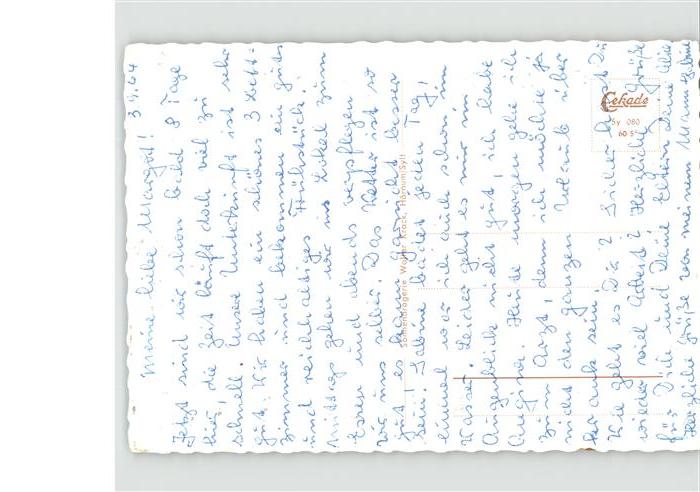 3.9.64
Meine liebe Margot!
Jetzt sind wir schon bald 8 Tage
hier, die Zeit läuft doch viel zu
schnell. Unsere Unterkunft ist sehr
gut. Wir haben ein schönes 3 Bett=
zimmer und bekommen ein gutes
und reichhaltiges Frühstück.
Mittags gehen wir ins Lokal zum
Essen und abends verpflegen
wir uns selber. Das Wetter ist so
gut es kann gar nicht besser
sein! Sabine badet jeden Tag,
einmal war ich auch schon im
Wasser. Leider geht es mir im
Augenblick nicht gut, ich habe
Angina. Heute morgen gehe ich
zum Arzt, denn ich möchte ja
nicht den ganzen Urlaub über
krank sein.
Wie geht es Dir? Sicher hast Du
wieder viel Arbeit? Herzliche Grüße
für Dich und Deine Eltern
Herzliche Grüße von meinem Mann
Sonnendrogerie Walter Krock, Hörnum/Sylt
Cekade
Sy 080
60 S